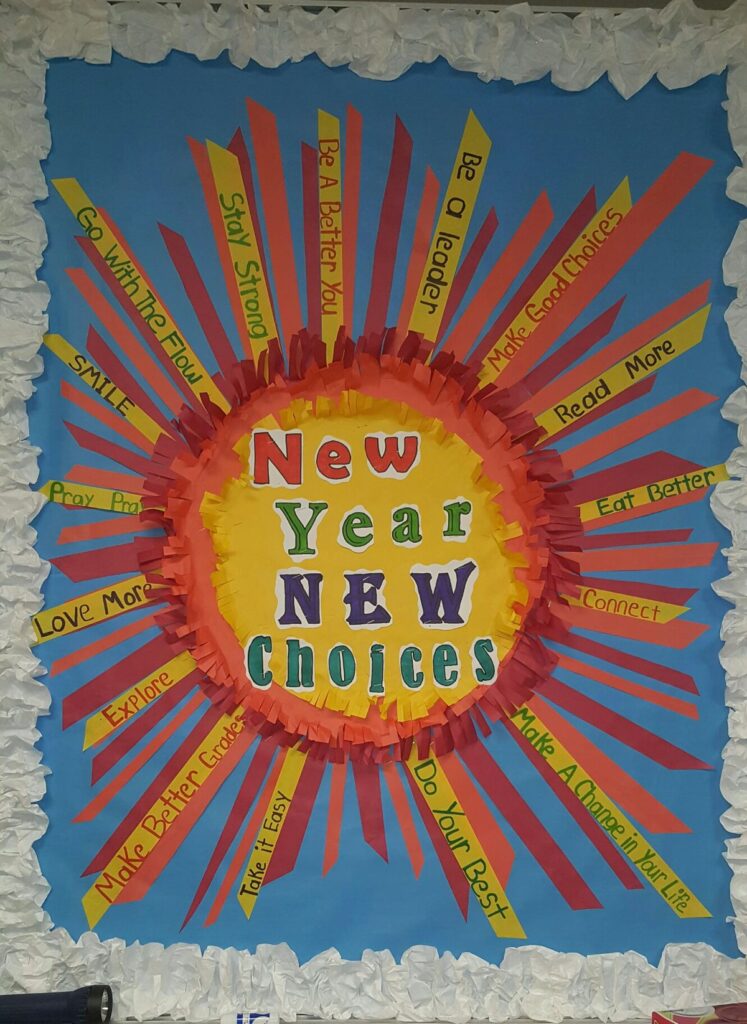 New
Year
NEW
Choices
Go With The Flow
Stay Strong
Be A Better You
Be a leader
Make Good Choices
Read More
Eat Better
Connect
Make A Change in Your Life
Do Your Best
Take it Easy
Make Better Grades
Explore
Love More
Pray Pra
SMILE